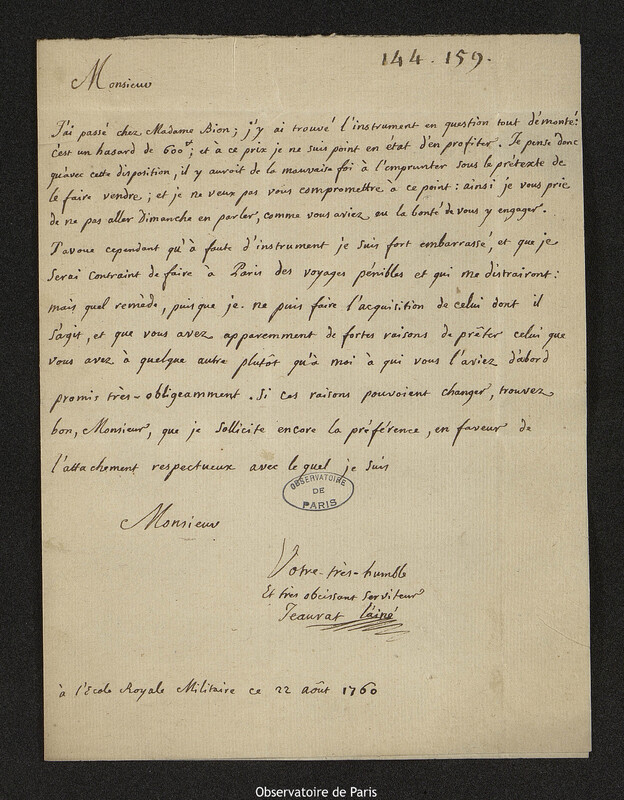 144. 159.
Monsieur
J'ai passé chez Madame Bion; j'y ai trouvé l'instrument en question tout démonté:
c'est un hasard de 600tt; et à ce prix je ne suis point en état d'en profiter. Je pense donc
qu'avec cette disposition, il y auroit de la mauvaise foi à l'emprunter sous le prétexte de
le faire vendre; et je ne veux pas vous compromettre à ce point: ainsi je vous prie
de ne pas aller Dimanche en parler, comme vous aviez eu la bonté de vous y engager.
J'avoue cependant qu'à faute d'instrument je suis fort embarrassé, et que je
serai contraint de faire à Paris des voyages pénibles et qui me distrairont:
mais quel remède, puisque je ne puis faire l'acquisition de celui dont il
s'agit, et que vous avez apparemment de fortes raisons de prêter celui que
vous avez à quelque autre plutôt qu'à moi à qui vous l'aviez d'abord
promis très-obligeamment. Si ces raisons pouvoient changer, trouvez
bon, Monsieur, que je sollicite encore la préférence, en faveur de
l'attachement respectueux avec le quel je suis
OBSERVATOIRE
DE
PARIS
Monsieur
Votre-très-humble
Et très obeissant serviteur
Jeaurat l'ainé
à l'Ecole Royale Militaire ce 22 août 1760
Observatoire de Paris